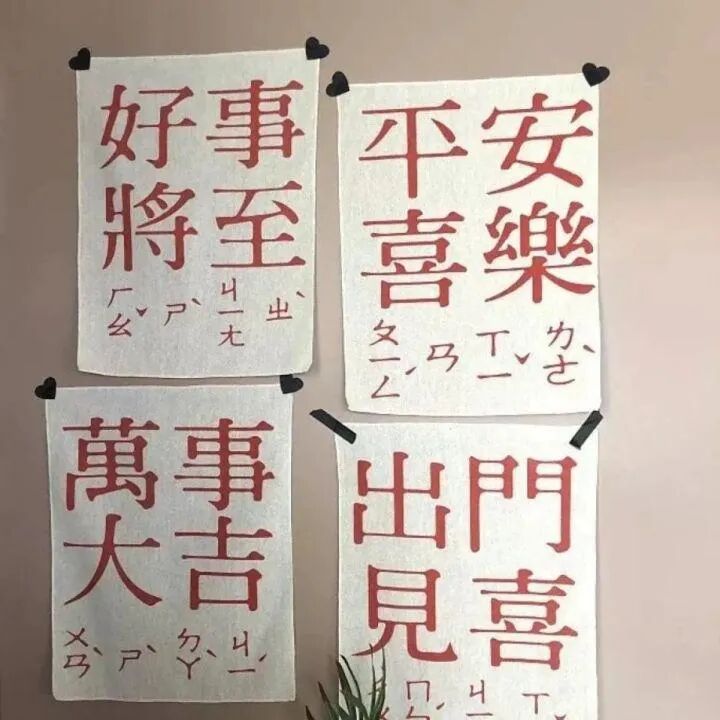 好事
將至
ㄏㄠˇ ㄕˋ ㄐㄧㄤ ㄓˋ
平安
喜樂
ㄆㄧㄥˊ ㄢ ㄒㄧˇ ㄌㄜˋ
萬事
大吉
ㄨㄢˋ ㄕˋ ㄉㄚˋ ㄐㄧˊ
出門
見喜